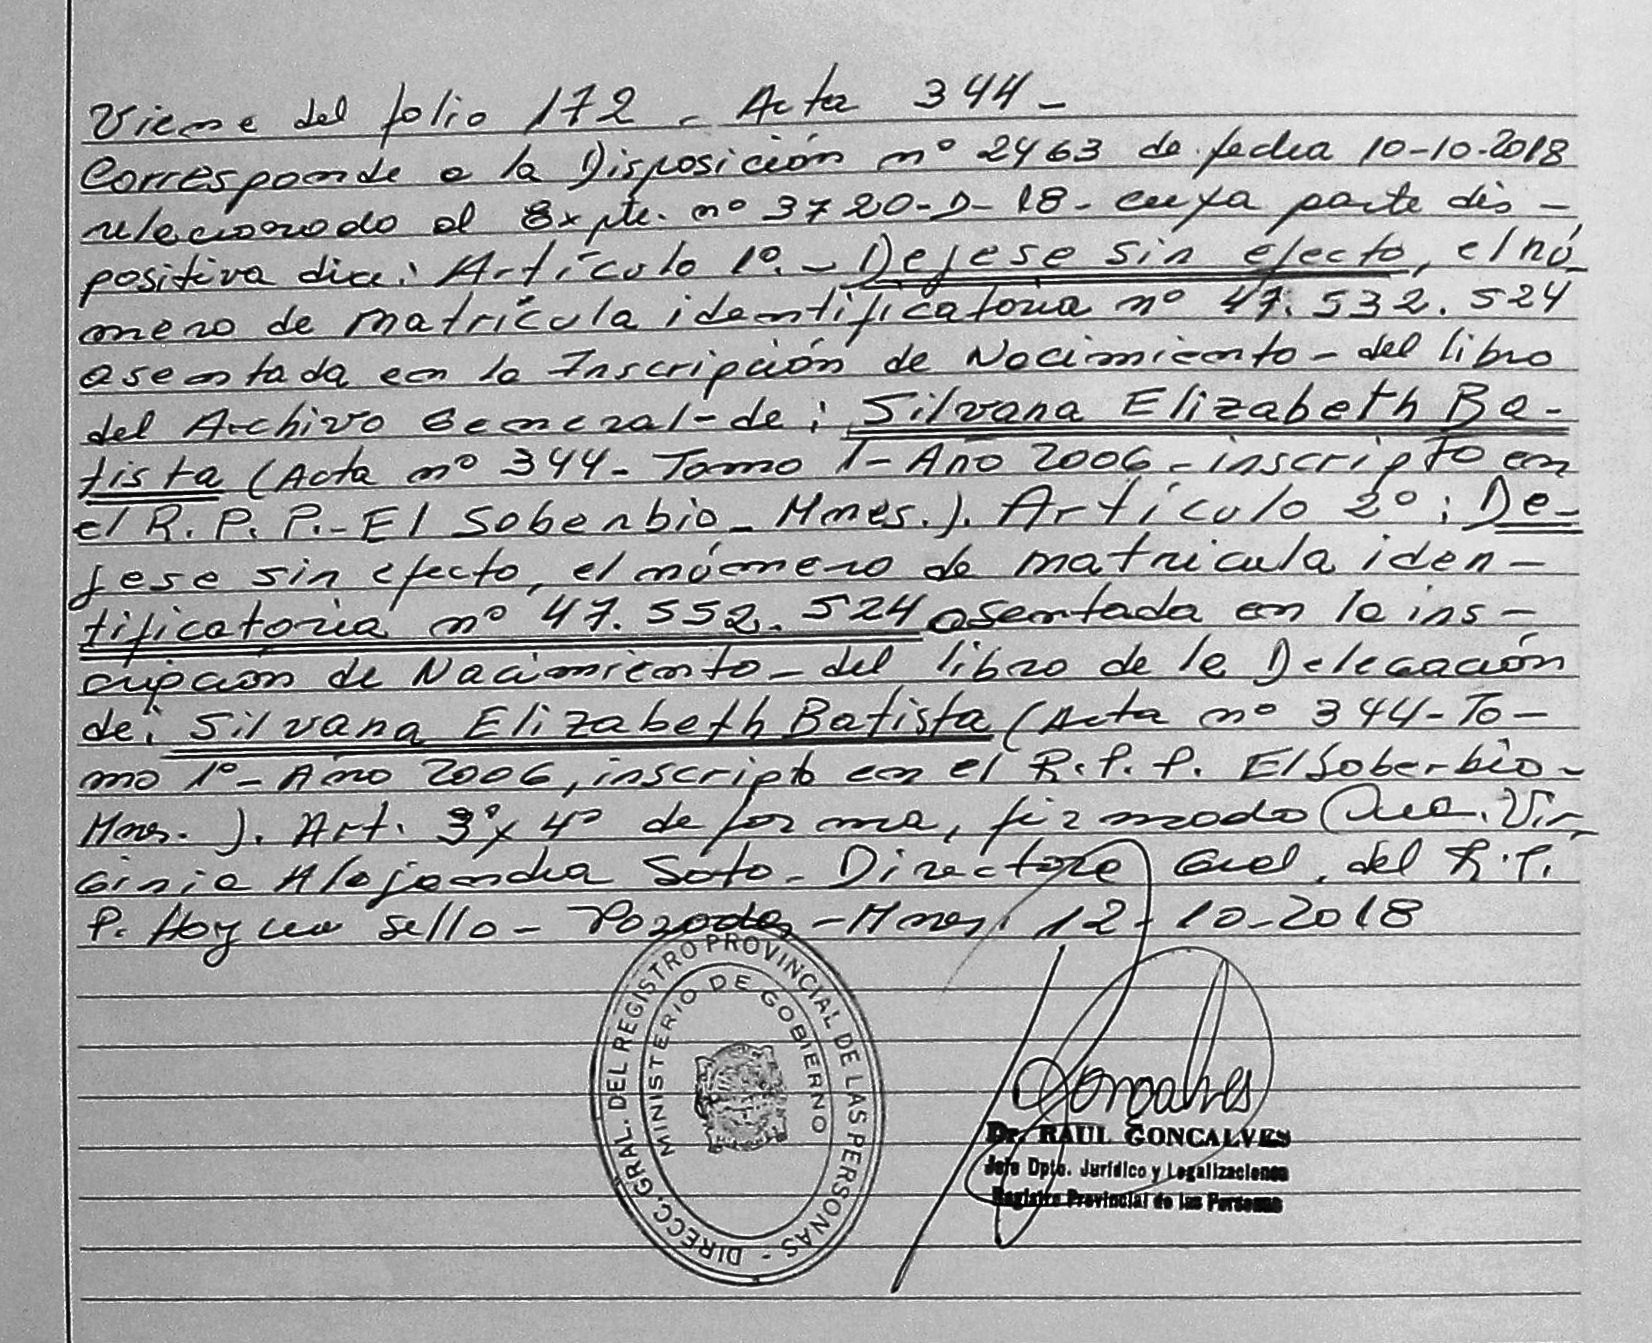 Viene del folio 172 - Acta 344 -
Corresponde a la Disposición nº 2463 de fecha 10-10-2018
relacionado al Expte. nº 3720-D-18 - cuya parte dis-
positiva dice: Artículo 1º. - Dejese sin efecto, el nú-
mero de matrícula identificatoria nº 47.532.524
asentada en la Inscripción de Nacimiento - del libro
del Archivo General - de: Silvana Elizabeth Ba-
tista (Acta nº 344 - Tomo 1 - Año 2006 - inscripto en
el R. P. P. - El Soberbio - Mnes.). Artículo 2º: De-
jese sin efecto, el número de matricula iden-
tificatoria nº 47.552.524 asentada en la ins-
cripción de Nacimiento - del libro de la Delegación
de: Silvana Elizabeth Batista (Acta nº 344 - To-
mo 1º - Año 2006, inscripto en el R. P. P. El Soberbio -
Mnes. ). Art. 3º y 4º de forma, firmado Vir-
ginia Alejandra Soto - Directora Gral. del R. P.
P. Hay un sello - Posadas - Mnes. 12-10-2018
DIRECC. GRAL. DEL REGISTRO PROVINCIAL DE LAS PERSONAS -
MINISTERIO DE GOBIERNO
Goncalves
Dr. RAUL GONCALVES
Jefe Dpto. Jurídico y Legalizaciones
Registro Provincial de las Personas